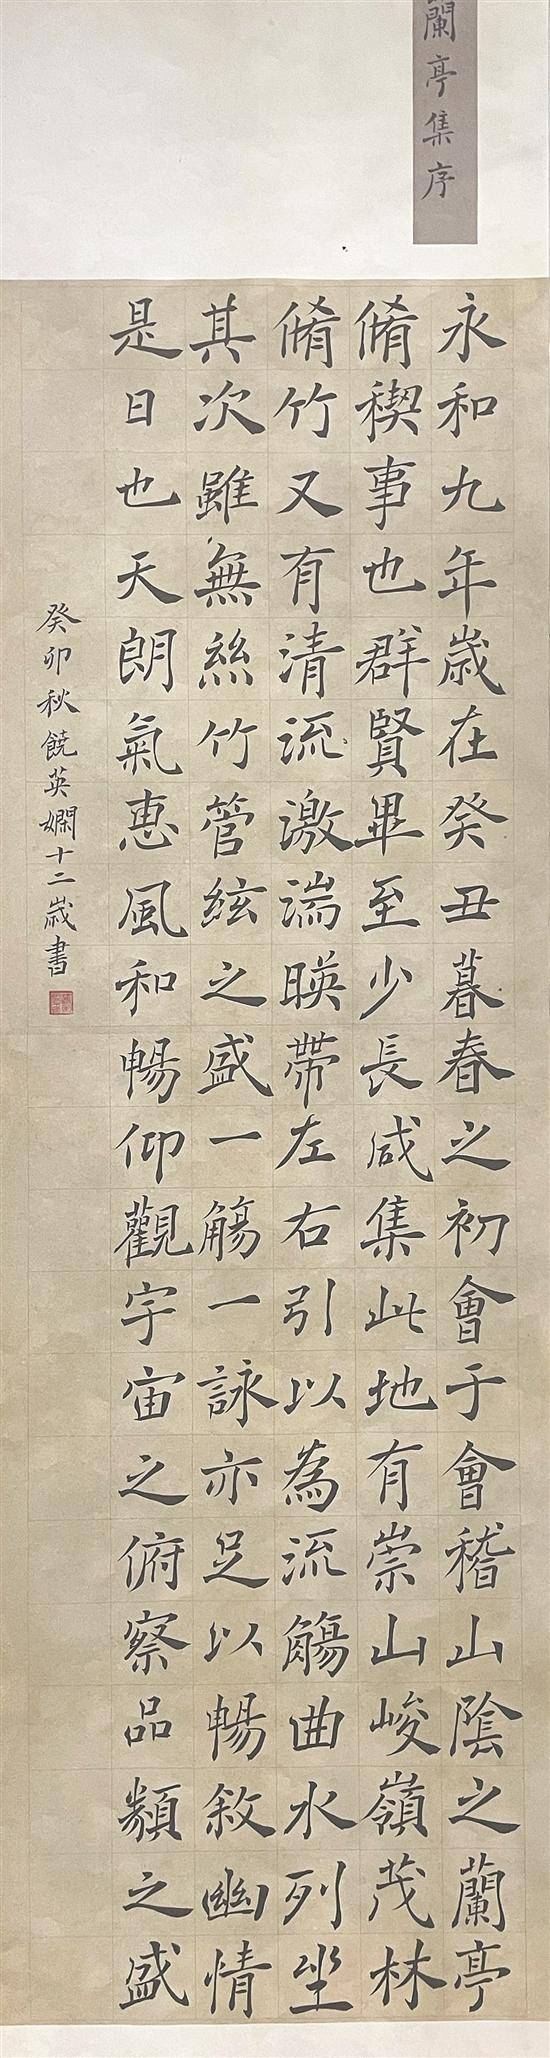 蘭亭集序
永和九年歲在癸丑暮春之初會于會稽山陰之蘭亭
脩稧事也群賢畢至少長咸集此地有崇山峻嶺茂林
脩竹又有清流激湍暎帶左右引以為流觴曲水列坐
其次雖無絲竹管絃之盛一觴一詠亦足以暢敘幽情
是日也天朗氣惠風和暢仰觀宇宙之俯察品類之盛
癸卯秋饒英嫻十二歲書